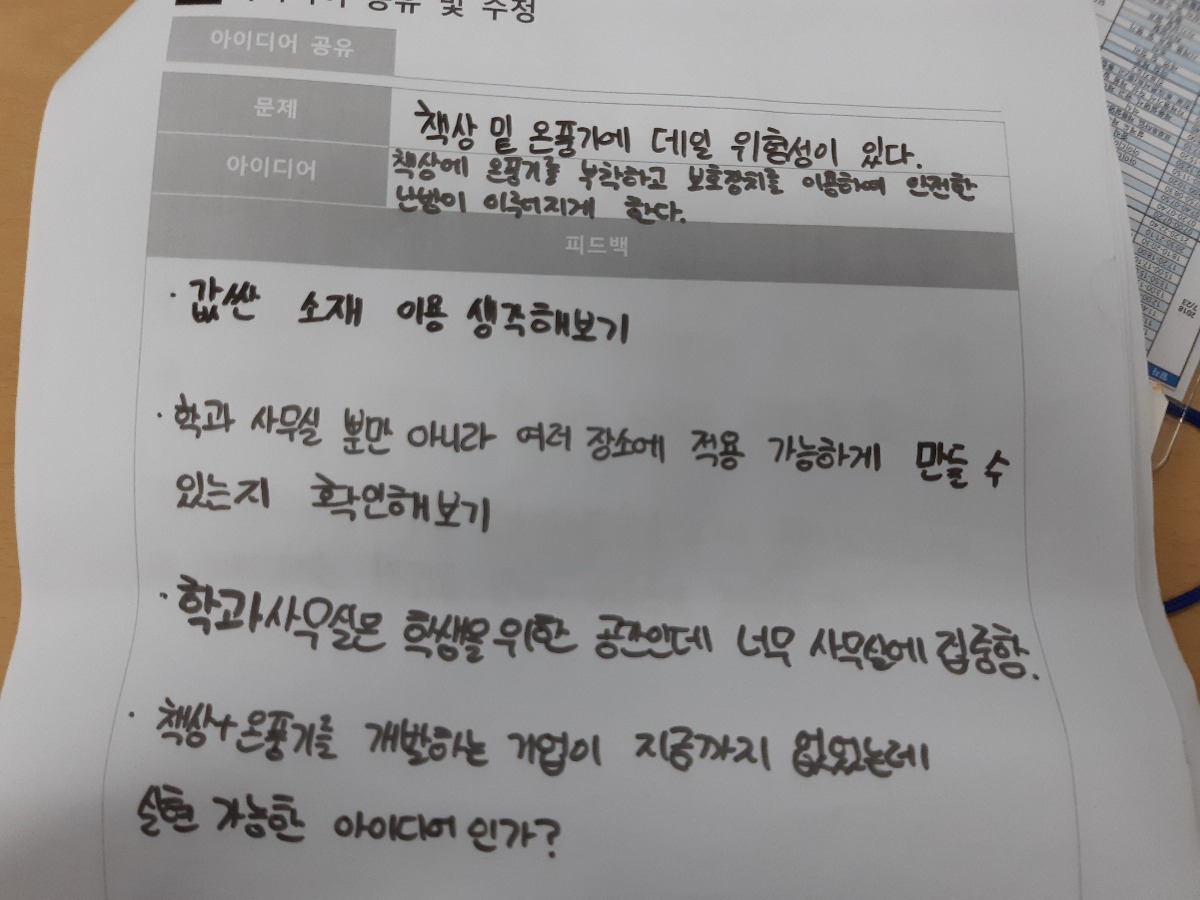 공유 및 수정
아이디어 공유
문제
책상 밑 온풍기에 데일 위험성이 있다.
아이디어
책상에 온풍기를 부착하고 보호장치를 이용하여 안전한
난방이 이루어지게 한다.
피드백
· 값싼 소재 이용 생각해보기
· 학과 사무실 뿐만 아니라 여러 장소에 적용 가능하게 만들 수
있는지 확인해보기
· 학과사무실은 학생을 위한 공간인데 너무 사무실에 집중함.
· 책상+온풍기를 개발하는 기업이 지금까지 없었는데
실현 가능한 아이디어인가?